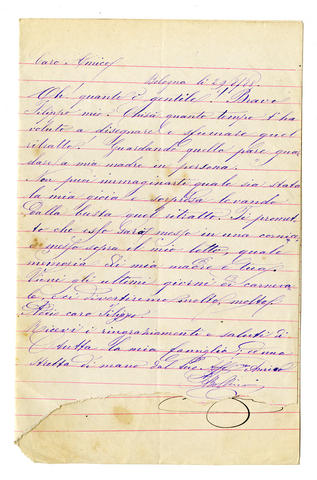 Caro Amico,
Bologna li 29
Oh! quanto è gentile! Bravo
Filippo mio. Chissà quanto tempo t'ha
voluto a disegnare e sfumare quel
ritratto! Guardando quello pare guar
dare a mia madre in persona.
Non puoi immaginarti quale sia stata
la mia gioia e sorpresa levando
dalla busta quel ritratto. Ti promet
to che esso sarà messo in una cornice
e messo sopra il mio letto, quale
memoria di mia madre e tua.
Vieni gli ultimi giorni di carneva
le, e ci divertiremo molto, molto.
Addio caro Filippo
Ricevi i ringraziamenti e saluti di
tutta la mia famiglia, ed una
stretta di mano dal tuo Aff.mo Amico